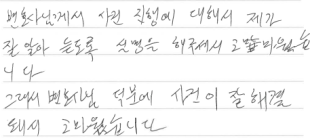 변호사님께서 사건 진행에 대해서 제가
잘 알아 듣도록 설명을 해주셔서 고맙웠습
니다
그래서 변호사님 덕분에 사건이 잘 해결
돼서 고마웠습니다